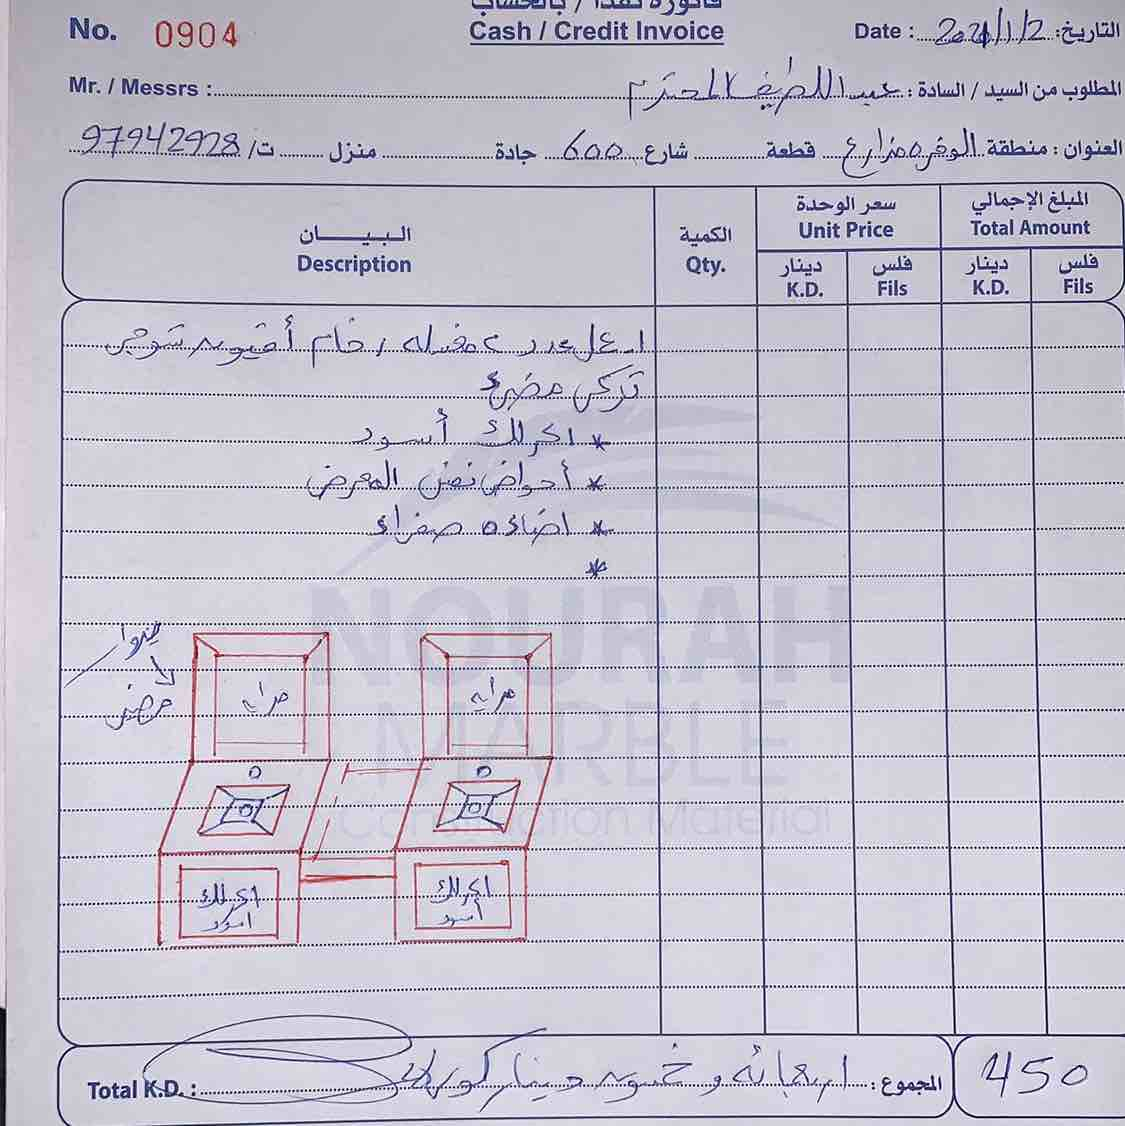 فاتورة نقداً / بالحساب
No. 0904
Cash / Credit Invoice
Date : 2021/1/2 التاريخ:
Mr. / Messrs : عبد اللطيف المحترم المطلوب من السيد / السادة :
العنوان : منطقة الوفره مزارع قطعة شارع 600 جادة منزل ت/ 97942928
البـيـــــان
Description
الكمية
Qty.
سعر الوحدة
Unit Price
المبلغ الإجمالي
Total Amount
دينار
K.D.
فلس
Fils
دينار
K.D.
فلس
Fils
عدد ٢ مغسله رخام
تركي مضئ
* اكرلك أسود
* أحواض نفس المعرض
* اضاءه صفراء
*
مضئ
مرايه
مرايه
NOURAH
MARBLE
Construction Material
اكرلك
اسود
اكرلك
أسود
Total K.D. : اربعمائه وخمسون دينار كويتي المجموع :
450